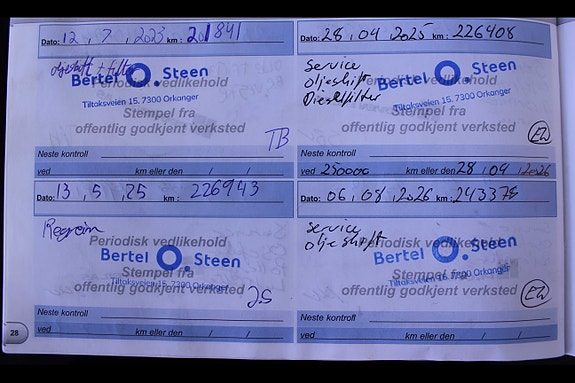 Dato: 12 , 7 , 2023 km : 201841
oljeskift + filter
Periodisk vedlikehold
Bertel O. Steen
Tiltaksveien 15, 7300 Orkanger
Stempel fra
offentlig godkjent verksted
TB
Neste kontroll
ved km eller den / /
Dato: 28 , 04 , 2025 km : 226408
Service
oljeshift
Dieselfilter
Periodisk vedlikehold
Bertel O. Steen
Tiltaksveien 15, 7300 Orkanger
Stempel fra
offentlig godkjent verksted
Neste kontroll
ved 250000 km eller den 28 / 04 / 2026
Dato: 13 , 5 , 25 km : 226943
Periodisk vedlikehold
Bertel O. Steen
Stempel fra
Tiltaksveien 15, 7300 Orkanger
offentlig godkjent verksted
Neste kontroll
ved km eller den / /
Dato: 06 , 08 , 2026 km : 243378
Service
oljeshift
Periodisk vedlikehold
Bertel O. Steen
Stempel fra
Tiltaksveien 15, 7300 Orkanger
offentlig godkjent verksted
Neste kontroll
ved km eller den / /
28